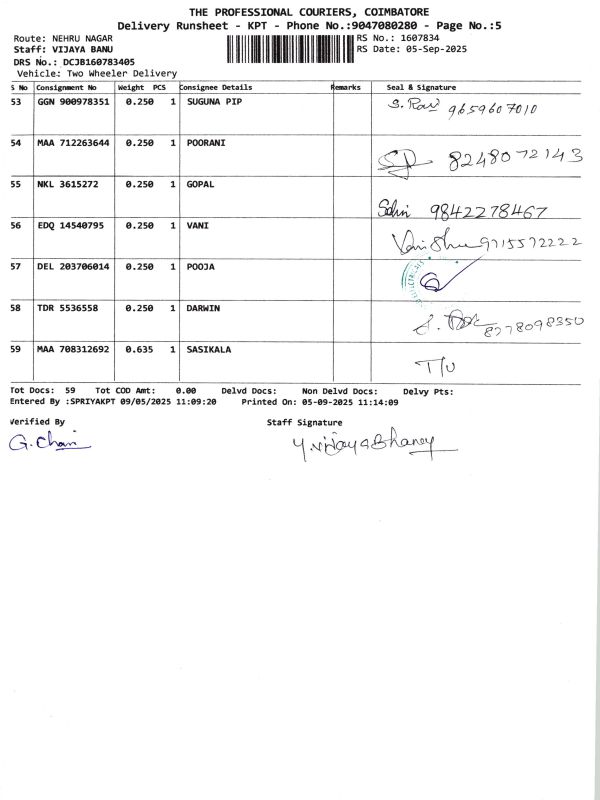 THE PROFESSIONAL COURIERS, COIMBATORE
Delivery Runsheet - KPT - Phone No.:9047080280 - Page No.:5
Route: NEHRU NAGAR RS No.: 1607834
Staff: VIJAYA BANU RS Date: 05-Sep-2025
DRS No.: DCJB160783405
Vehicle: Two Wheeler Delivery
S No Consignment No Weight PCS Consignee Details Remarks Seal & Signature
53 GGN 900978351 0.250 1 SUGUNA PIP 9659607010
54 MAA 712263644 0.250 1 POORANI 8248072143
55 NKL 3615272 0.250 1 GOPAL 9842278467
56 EDQ 14540795 0.250 1 VANI 9715572222
57 DEL 203706014 0.250 1 POOJA
58 TDR 5536558 0.250 1 DARWIN 8278098350
59 MAA 708312692 0.635 1 SASIKALA T/U
Tot Docs: 59 Tot COD Amt: 0.00 Delvd Docs: Non Delvd Docs: Delvy Pts:
Entered By :SPRIYAKPT 09/05/2025 11:09:20 Printed On: 05-09-2025 11:14:09
Verified By Staff Signature